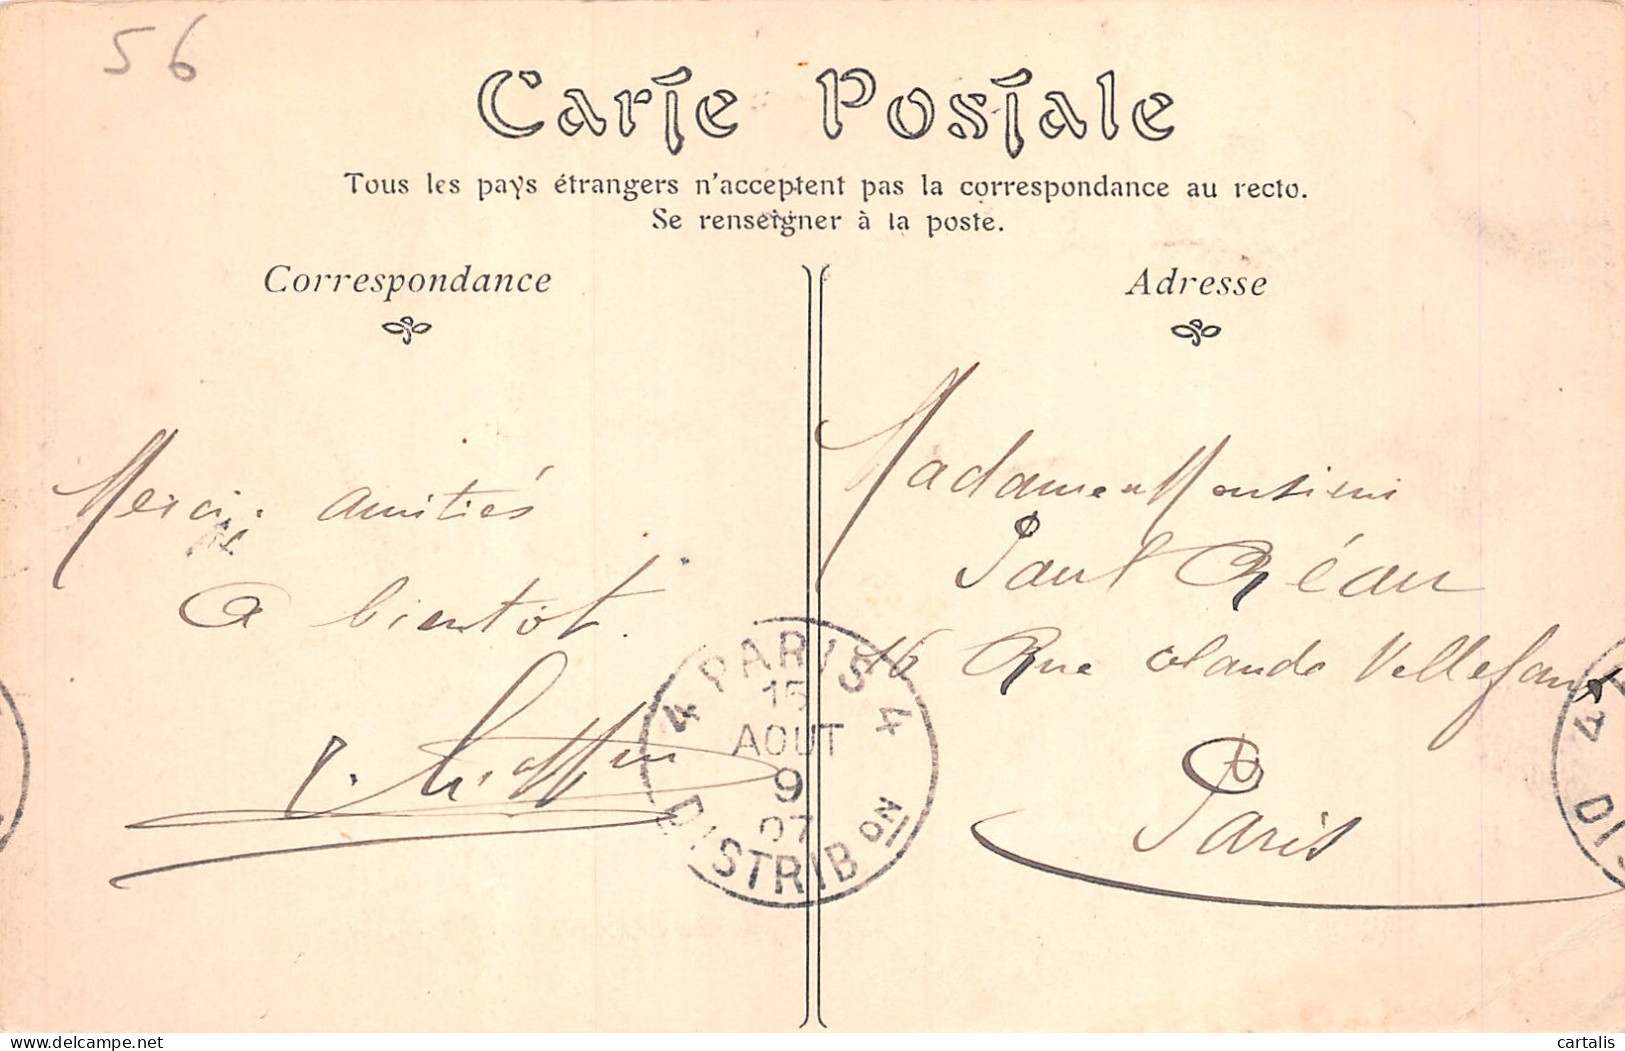 56
Carte Postale
Tous les pays étrangers n'acceptent pas la correspondance au recto.
Se renseigner à la poste.
Correspondance
Adresse
Merci. amitiés
A bientôt.
Madame Monsieur
Paul Réau
16 Rue Claude Vellefaux
Paris
4 PARIS 4
15
AOUT
9
07
DISTRIB ON
4
DI
delcampe.net
cartalis